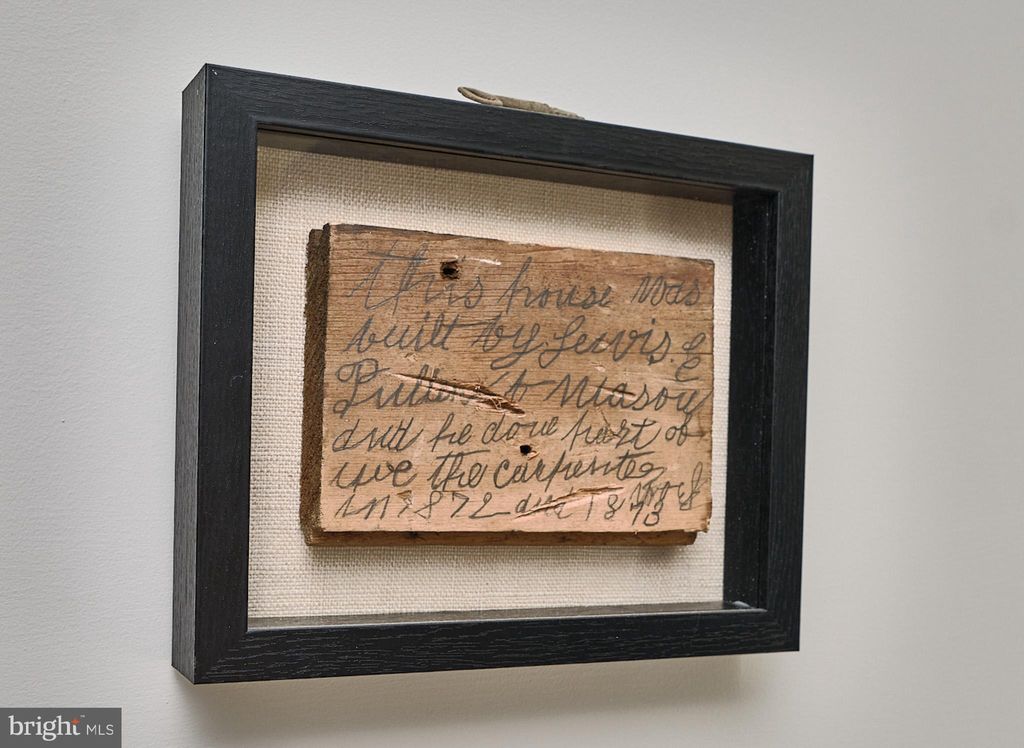 this house was
built by Lewis. E
Pullen a Mason
and he done part of
the carpenter
work
in 1872 and 1873
bright MLS